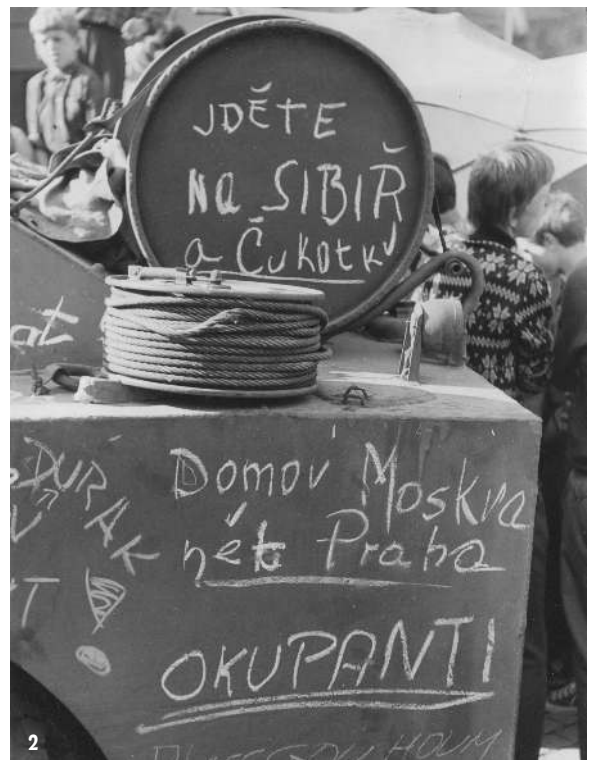 JDĚTE
NA SIBIŘ
a Čukotku
at
DURÁK
Domov Moskva
nět Praha
OKUPANTI
2